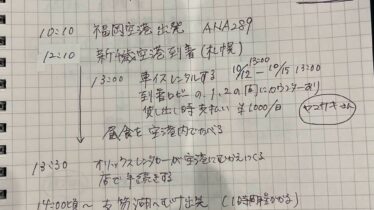 10:10 福岡空港出発 ANA289
12:10 新千歳空港到着(札幌)
13:00 車イスレンタルする 10/12 13:00 ー 10/15 13:00
到着ロビーの1、2の間にカウンターあり
貸し出し時支払い ¥1000/日
昼食を空港内でたべる
13:30 オリックスレンタカーが空港にむかえにくる
店で手続きする
14:00頃〜 支笏湖へむけ出発 (1時間程かかる)